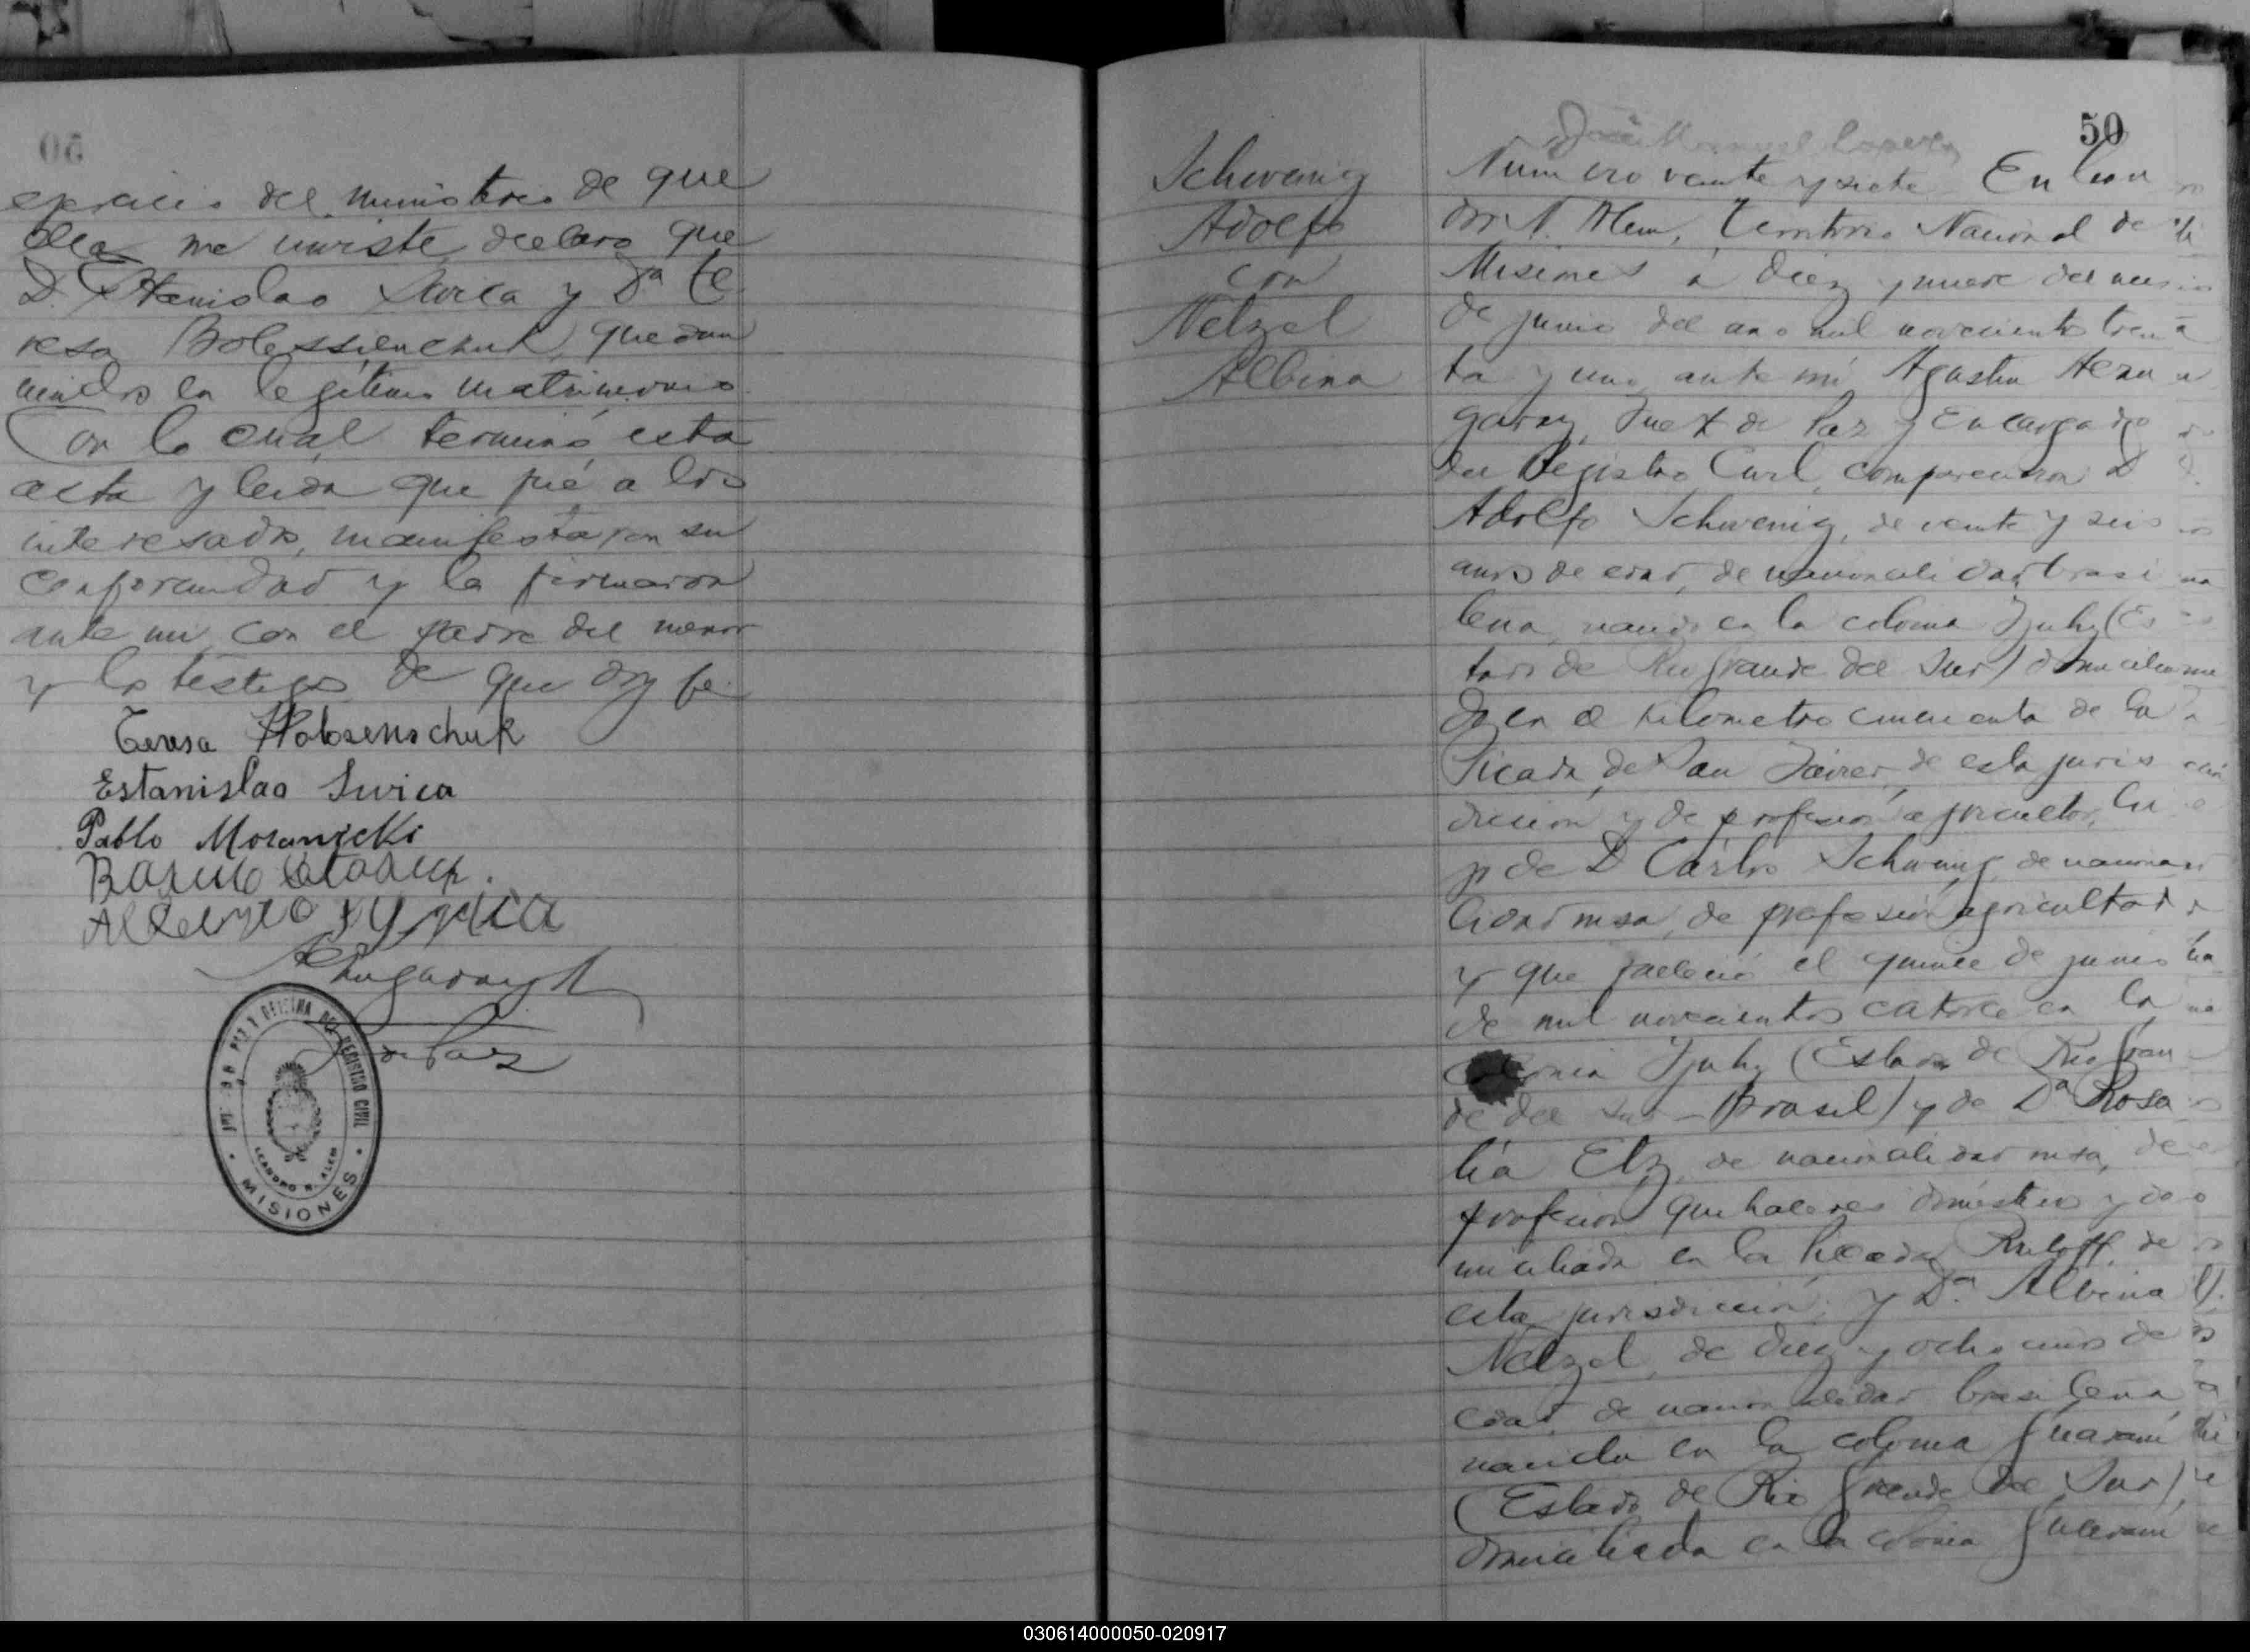 del ministerio de que
ella me inviste, declaro que
D. Stanislao Swica y Dª Te
resa quedan
unidos en legitimo matrimonio
Con lo cual terminó esta
acta y leida que fué a los
interesados, manifestaron su
conformidad y la firmaron
ante mi, con el padre del menor
y los testigos de que doy fe.
Teresa
Estanislao Swica
Pablo
de Paz
JUZ DE PAZ Y OFICINA DEL REGISTRO CIVIL
LEANDRO N. ALEM
MISIONES
50
Schwenig
Adolfo
con
Netzel
Albina
José Manuel
Numero veinte y siete En Lean
dro N. Alem, Territorio Nacional de
Misiones á diez y nueve del mes
de junio del año mil novecientos trein
ta y uno, ante mi Agustin
garay, Juez de Paz y Encargado
del Registro Civil, comparecieron D
Adolfo Schwenig, de veinte y seis
años de edad, de nacionalidad brasi
leña, nacido en la colonia Yjuhy (Es
tado de Rio Grande del Sur) domicilia
do en el kilometro cincuenta de la
Picada de San Javier, de esta juris
dicción y de profesión agricultor, hi
jo de D Carlos Schwenig, de naciona
lidad rusa, de profesión agricultor
y que falleció el quince de junio
de mil novecientos catorce en la
colonia Yjuhy (Estado de Rio Gran
de del Sur - Brasil) y de Dª Rosa
lia Elz, de nacionalidad rusa, de
profesión quehaceres domésticos y do
miciliada en la Picada Ruloff, de
esta jurisdicción; y Dª Albina
Netzel, de diez y ocho años de
edad, de nacionalidad brasileña
nacida en la colonia Guaraní
(Estado de Rio Grande del Sur),
domiciliada en la colonia Guaraní
030614000050-020917